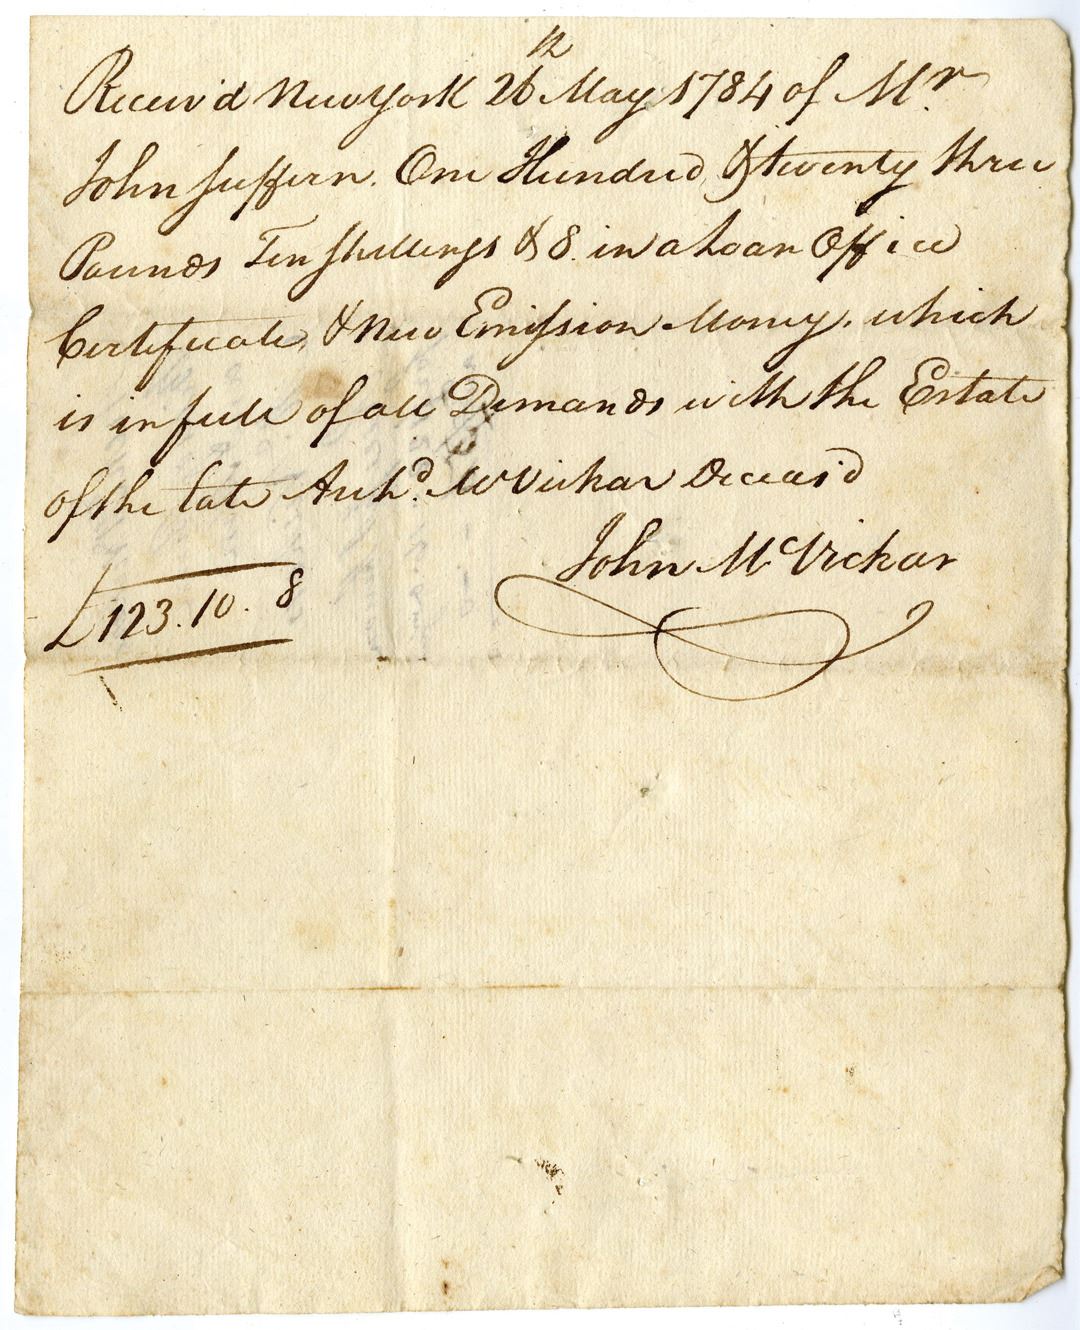 Receiv'd New York 26th May 1784 of Mr
John Suffern. One Hundred & twenty three
Pounds Ten Shillings & 8 in a Loan Office
Certificate, & New Emission Money. which
is in full of all Demands with the Estate
of the late Archd. McVickar Deceas'd
John McVickar
£123.10.8